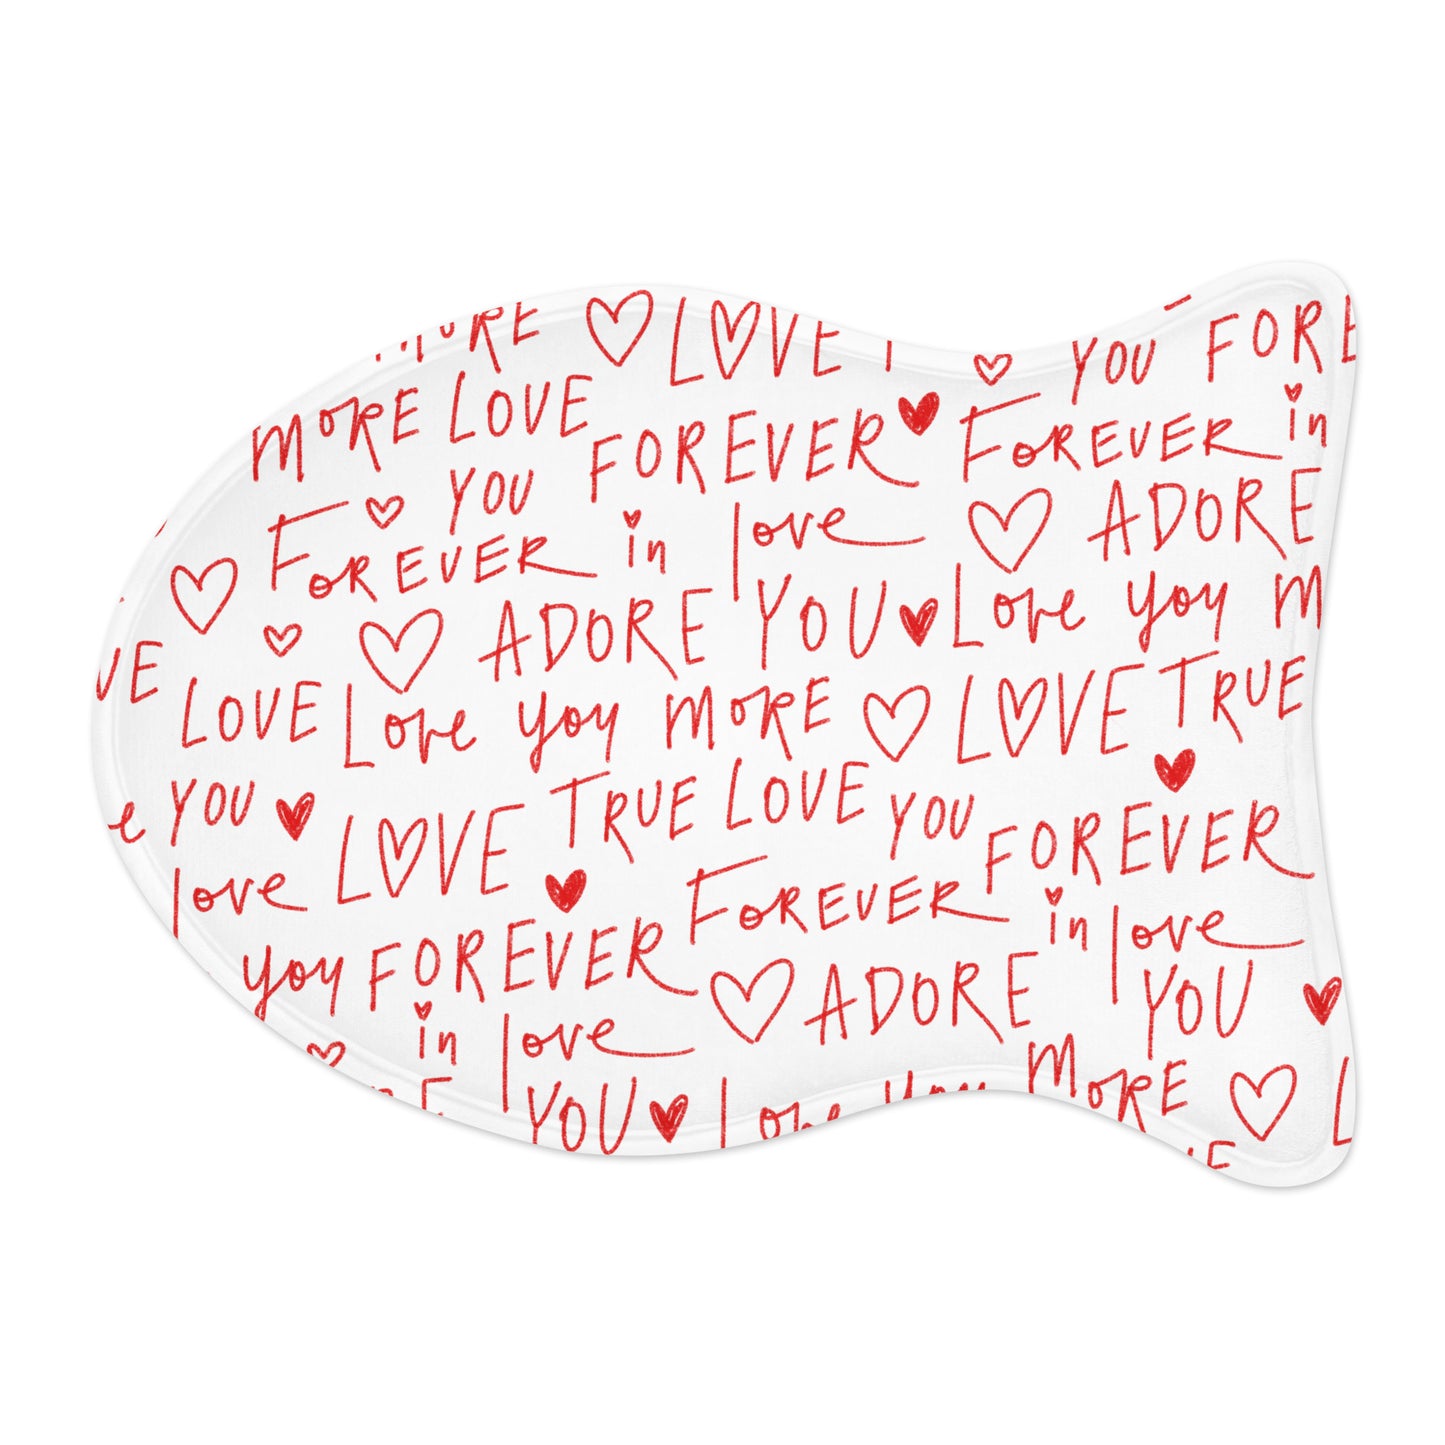 MORE LOVE
YOU FOR
MORE LOVE
YOU FOREVER FOREVER in
FOREVER in love ADORE
ADORE YOU Love you M
LOVE Love you MORE LOVE TRUE
YOU LOVE TRUE LOVE YOU FOREVER
love FOREVER in love
you FOREVER ADORE YOU
in love
YOU Love you MORE